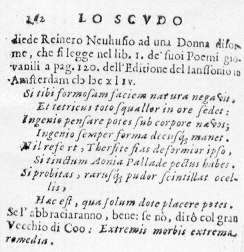 262 LO SCVDO
diede Reinero Neuhusio ad una Donna difor-
me, che si legge nel lib. 1. de' suoi Poemi gio-
vanili a pag. 120. dell'Editione del Ianssonio in
Amsterdam cIↄ Iↄc xlIv.
Si tibi formosam faciem natura negavit,
Et tetricus toto squallor in ore sedet:
Ingenio pensare potes sub corpore nævos;
Ingenio semper forma decusq; manet.
Nil refert, Thersite fias deformior ipso,
Si tinctum Aonia Pallade pectus habes.
Si probitas, rarusq; pudor scintillat ocel-
lis,
Hæc est, qua solum dote placere potes.
Se l'abbraciaranno, bene: se nò, dirò col gran
Vecchio di Coo: Extremis morbis extrema
remedia.